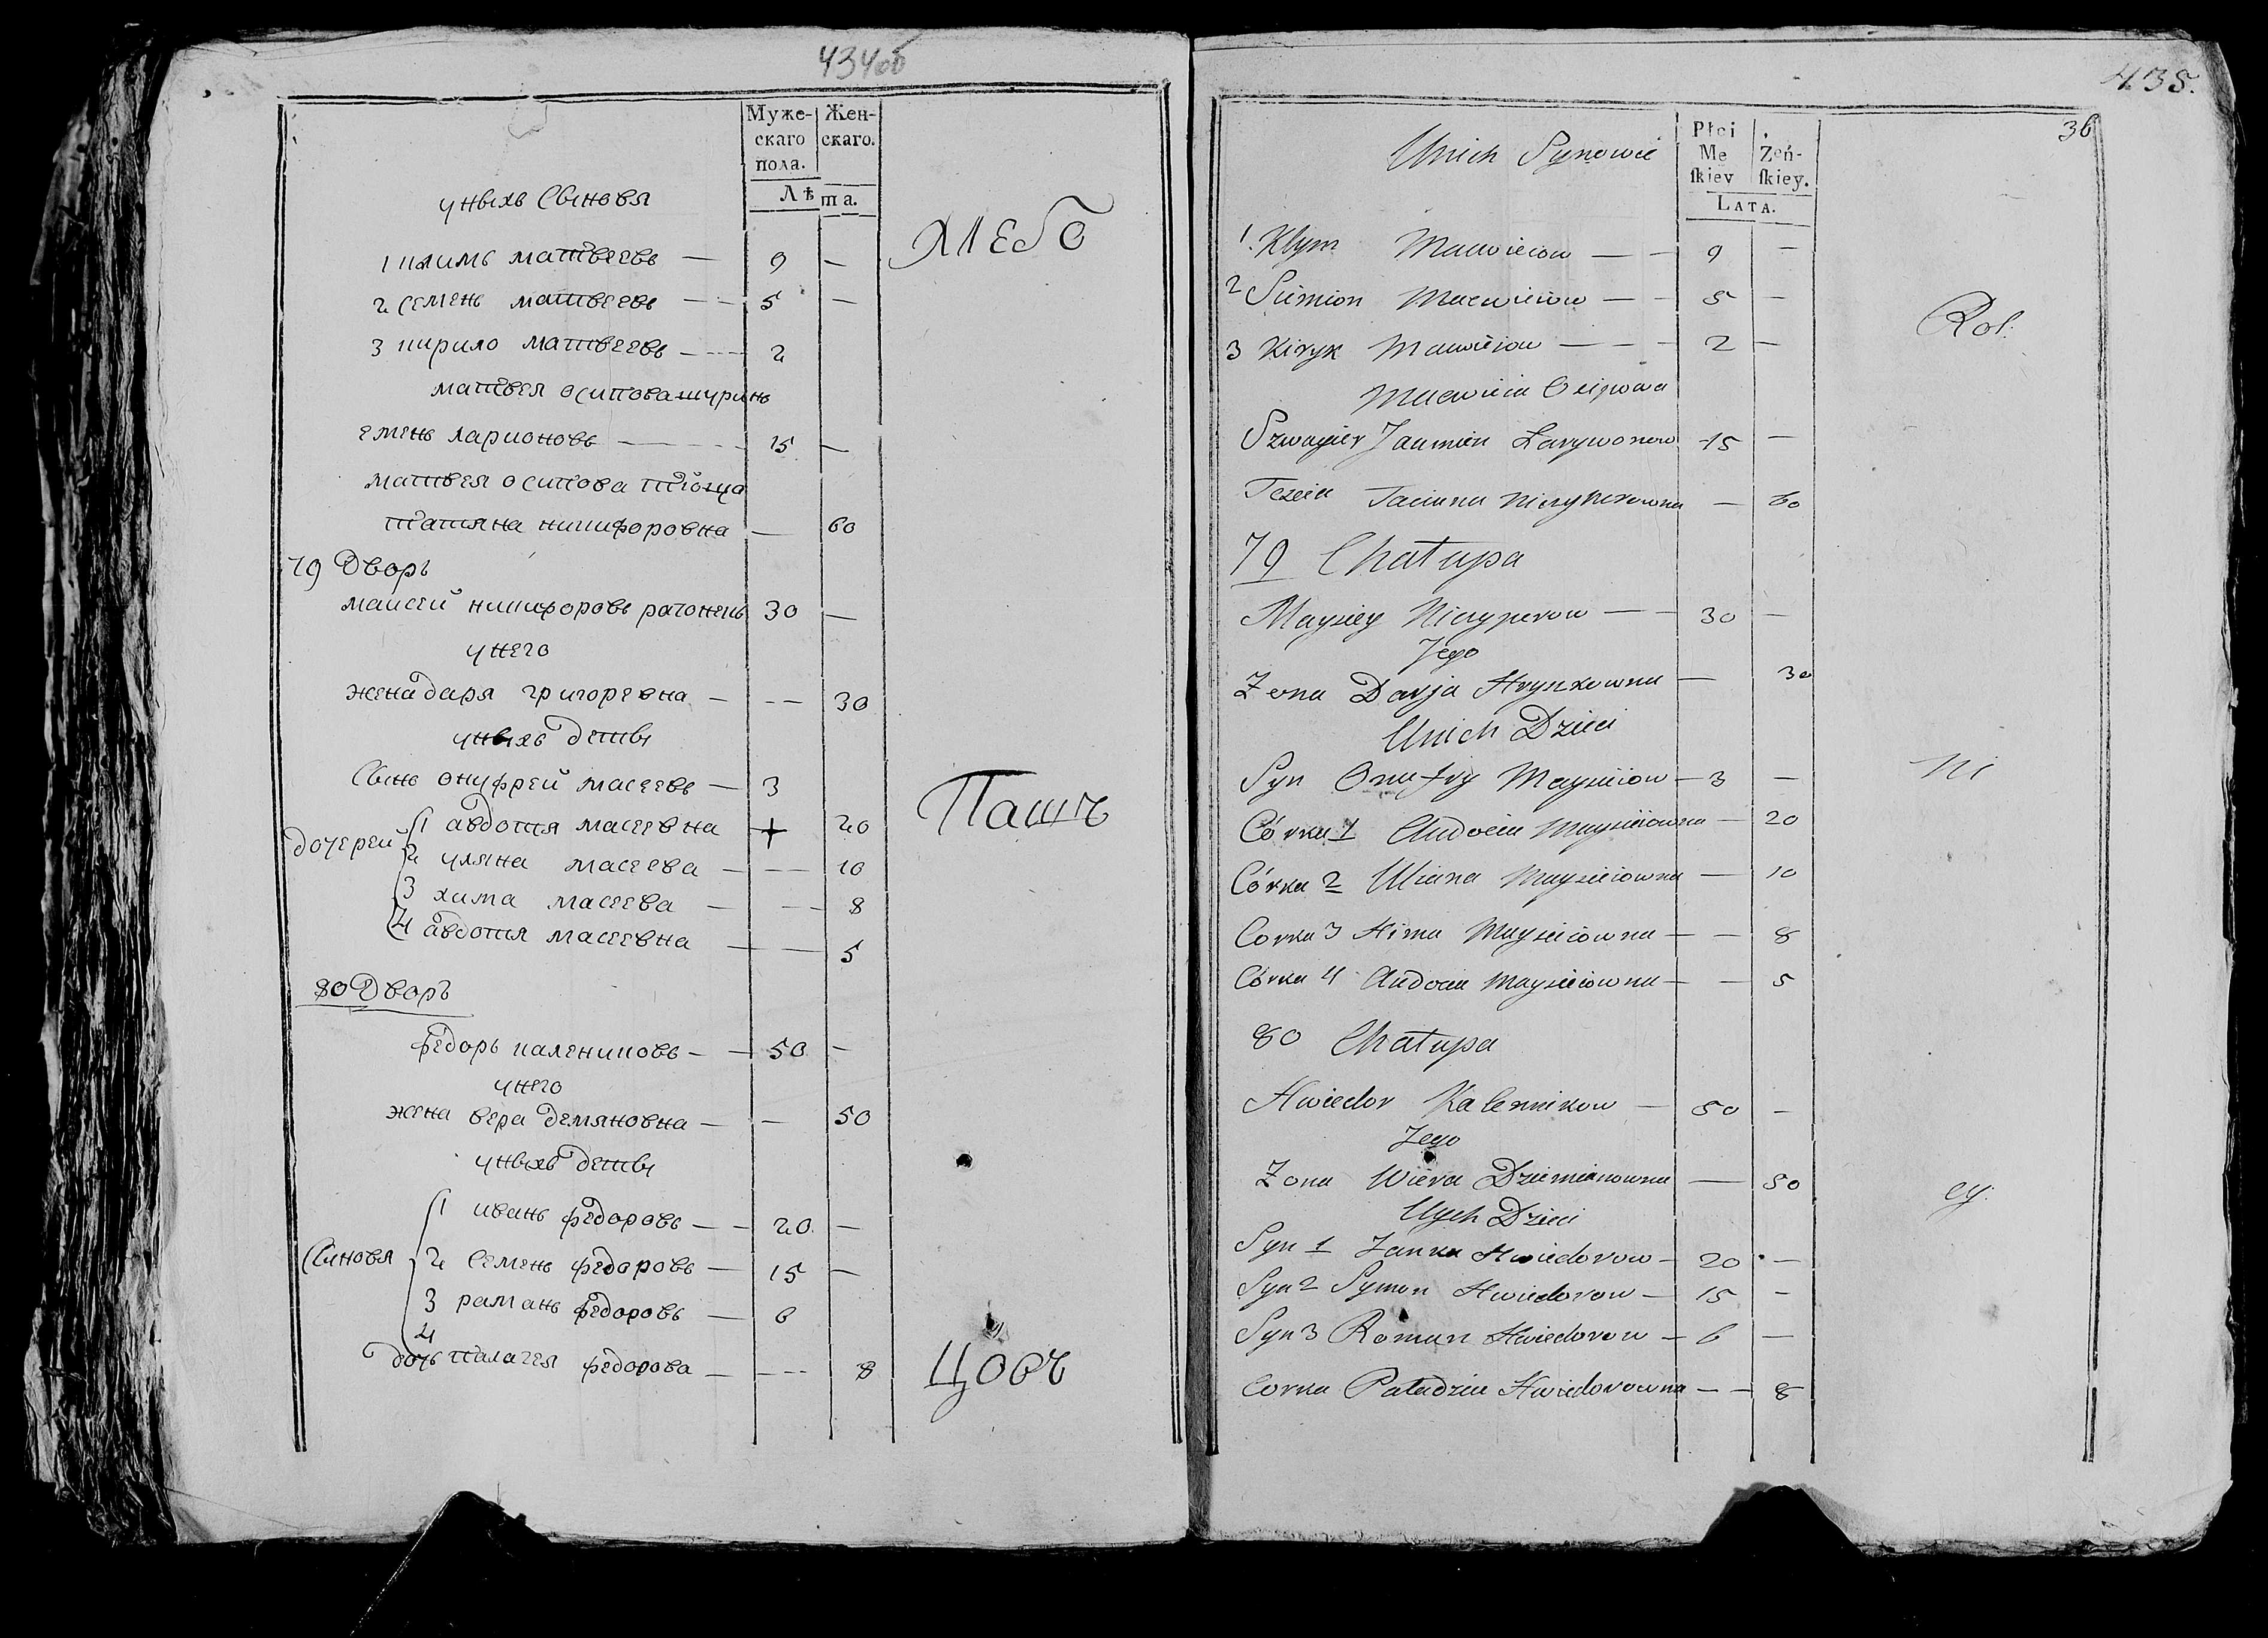 434об
Муже- Жен-
скаго скаго.
пола.
Лѣта.
уныхъ Сыновя
1 климъ матвеевъ — 9 —
2 семенъ матвеевъ — 5 —
3 кирило матвеевъ — 2
матвея осипова шуринъ
емень ларионовъ — 15 —
матвея осипова тіоща
татяна никифоровна — 60
79 Дворъ
маисей никифоровъ 30 —
унего
жена даря григоревна — 30
уныхъ деты
Сынъ онуфрей масеевъ — 3
дочерей 1 авдотя масеевна + 20
2 уляна масеева — 10
3 хима масеева — 8
4 авдотя масеевна — 5
80 Дворъ
федоръ калениковъ — 50 —
унего
жена вера демяновна — 50
уныхъ деты
Сыновя 1 иванъ федоровъ — 20 —
2 Семенъ федоровъ — 15 —
3 раманъ федоровъ — 6
4
дочь палагея федорова — 8
ХЛЕБО
Пашъ
Цовъ
435.
36
Płci
Me Żeń-
skiey skiey.
LATA.
Unich Synowie
1. Klym Maciwieiow — 9 —
2 Siemion Maciwieiow — 5 —
3 Kiryk Maciwieiow — 2 —
Maciwieia Osipowa
Szwagier Jaumien Larywonow 15 —
Teścia Taciana Niczyperowna — 60
79 Chatupa
Maysiey Niczyperow — 30 —
Jego
Zona Darja Hryszkowna — 30
Unich Dzieci
Syn Onufry Maysieiow — 3 —
Córka 1 Audocia Maysieiowna — 20
Córka 2 Uliana Maysieiowna — 10
Corka 3 Hima Maysieiowna — 8
Córka 4 Audocia Maysieiowna — 5
80 Chatupa
Hwiedor Kalennikow — 50 —
Jego
Zona Wiera Dziemianowna — 50
Uych Dzieci
Syn 1 Janka Hwiedorow — 20 —
Syn 2 Symon Hwiedorow — 15 —
Syn 3 Roman Hwiedorow — 6 —
Corka Paladzia Hwiedorowna — 8
Rol.
Ni
cy.